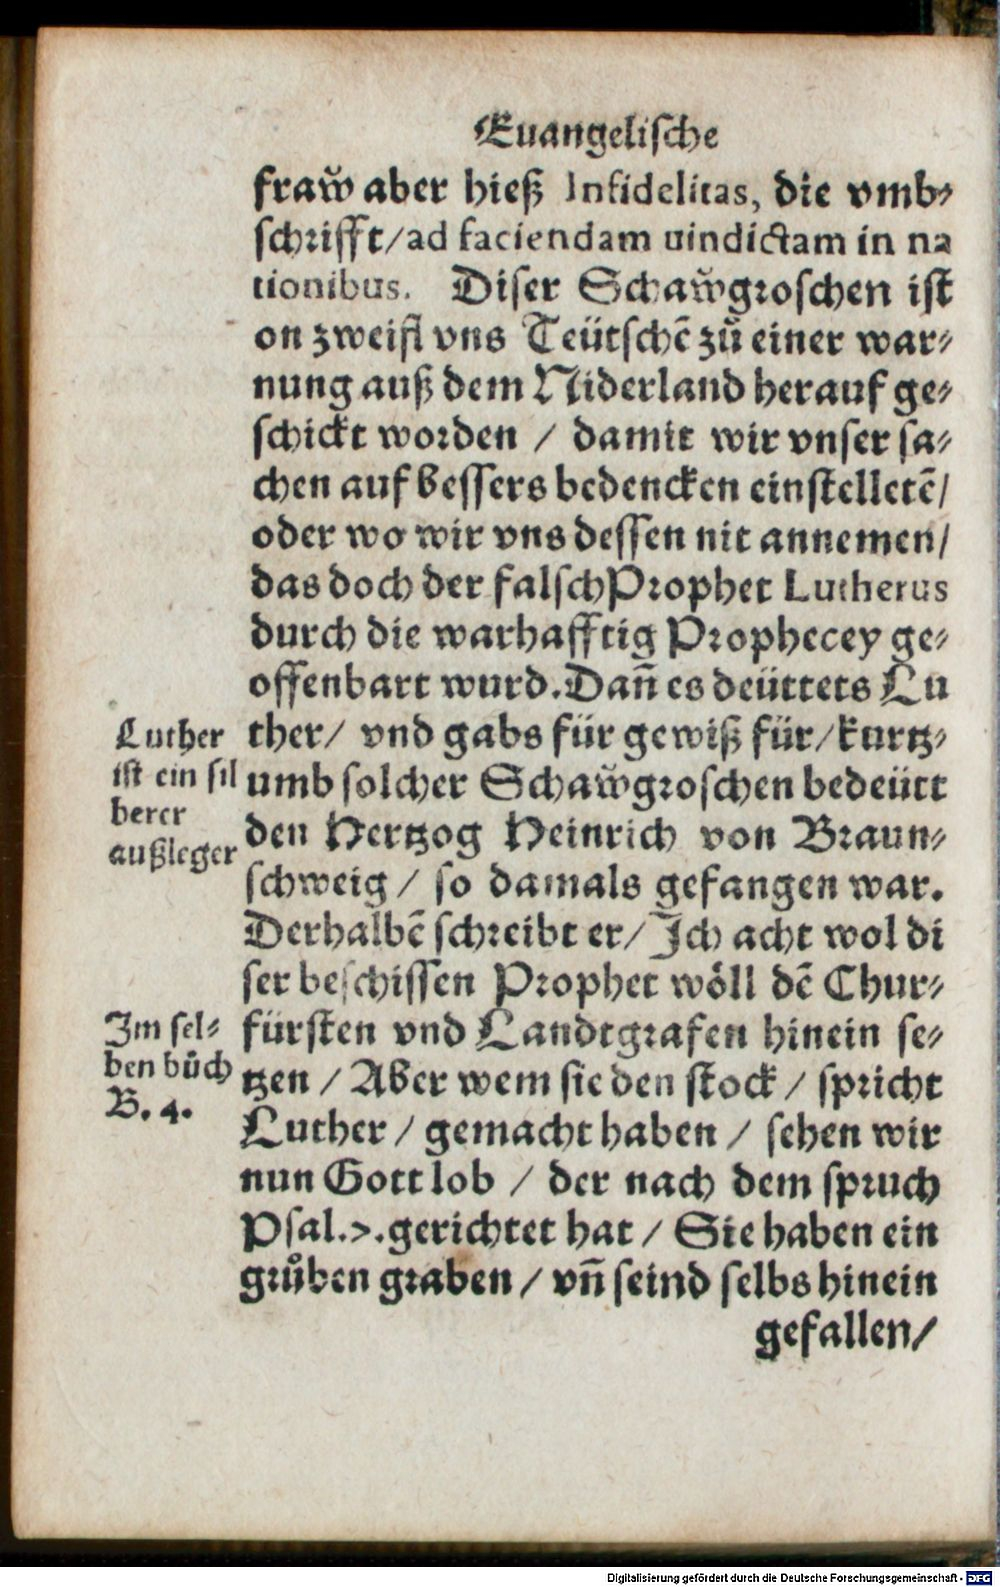 Euangelische
fraw̃ aber hieß Infidelitas, die vmb⸗
schrifft/ad faciendam uindictam in na
tionibus. Diser Schaw̃groschen ist
on zweifl vns Teütschẽ zů einer war⸗
nung auß dem Niderland herauf ge⸗
schickt worden / damit wir vnser sa⸗
chen auf bessers bedencken einstelletẽ/
oder wo wir vns dessen nit annemen/
das doch der falsch Prophet Lutherus
durch die warhafftig Prophecey ge⸗
offenbart wurd. Dañ es deüttets Lu
ther/ vnd gabs für gewiß für/kurtz⸗
umb solcher Schaw̃groschen bedeütt
den Hertzog Heinrich von Braun⸗
schweig / so damals gefangen war.
Derhalbẽ schreibt er/ Ich acht wol di
ser beschissen Prophet wöll dẽ Chur⸗
fürsten vnd Landtgrafen hinein se⸗
tzen / Aber wem sie den stock / spricht
Luther / gemacht haben / sehen wir
nun Gott lob / der nach dem spruch
Psal.7.gerichtet hat / Sie haben ein
grůben graben / vñ seind selbs hinein
gefallen/
Luther
ist ein sil
berer
außleger
Im sel⸗
ben bůch
B. 4.
Digitalisierung gefördert durch die Deutsche Forschungsgemeinschaft - DFG